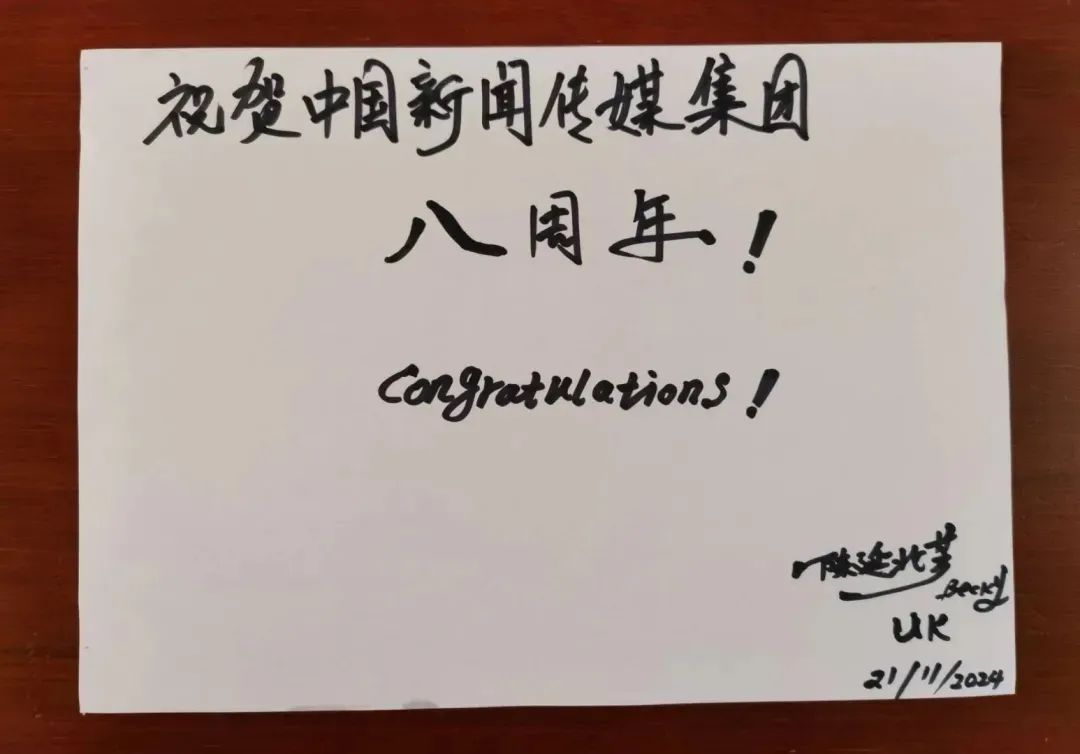 祝贺中国新闻传媒集团
八周年!
Congratulations!
陈延北
Becky
UK
21/11/2024